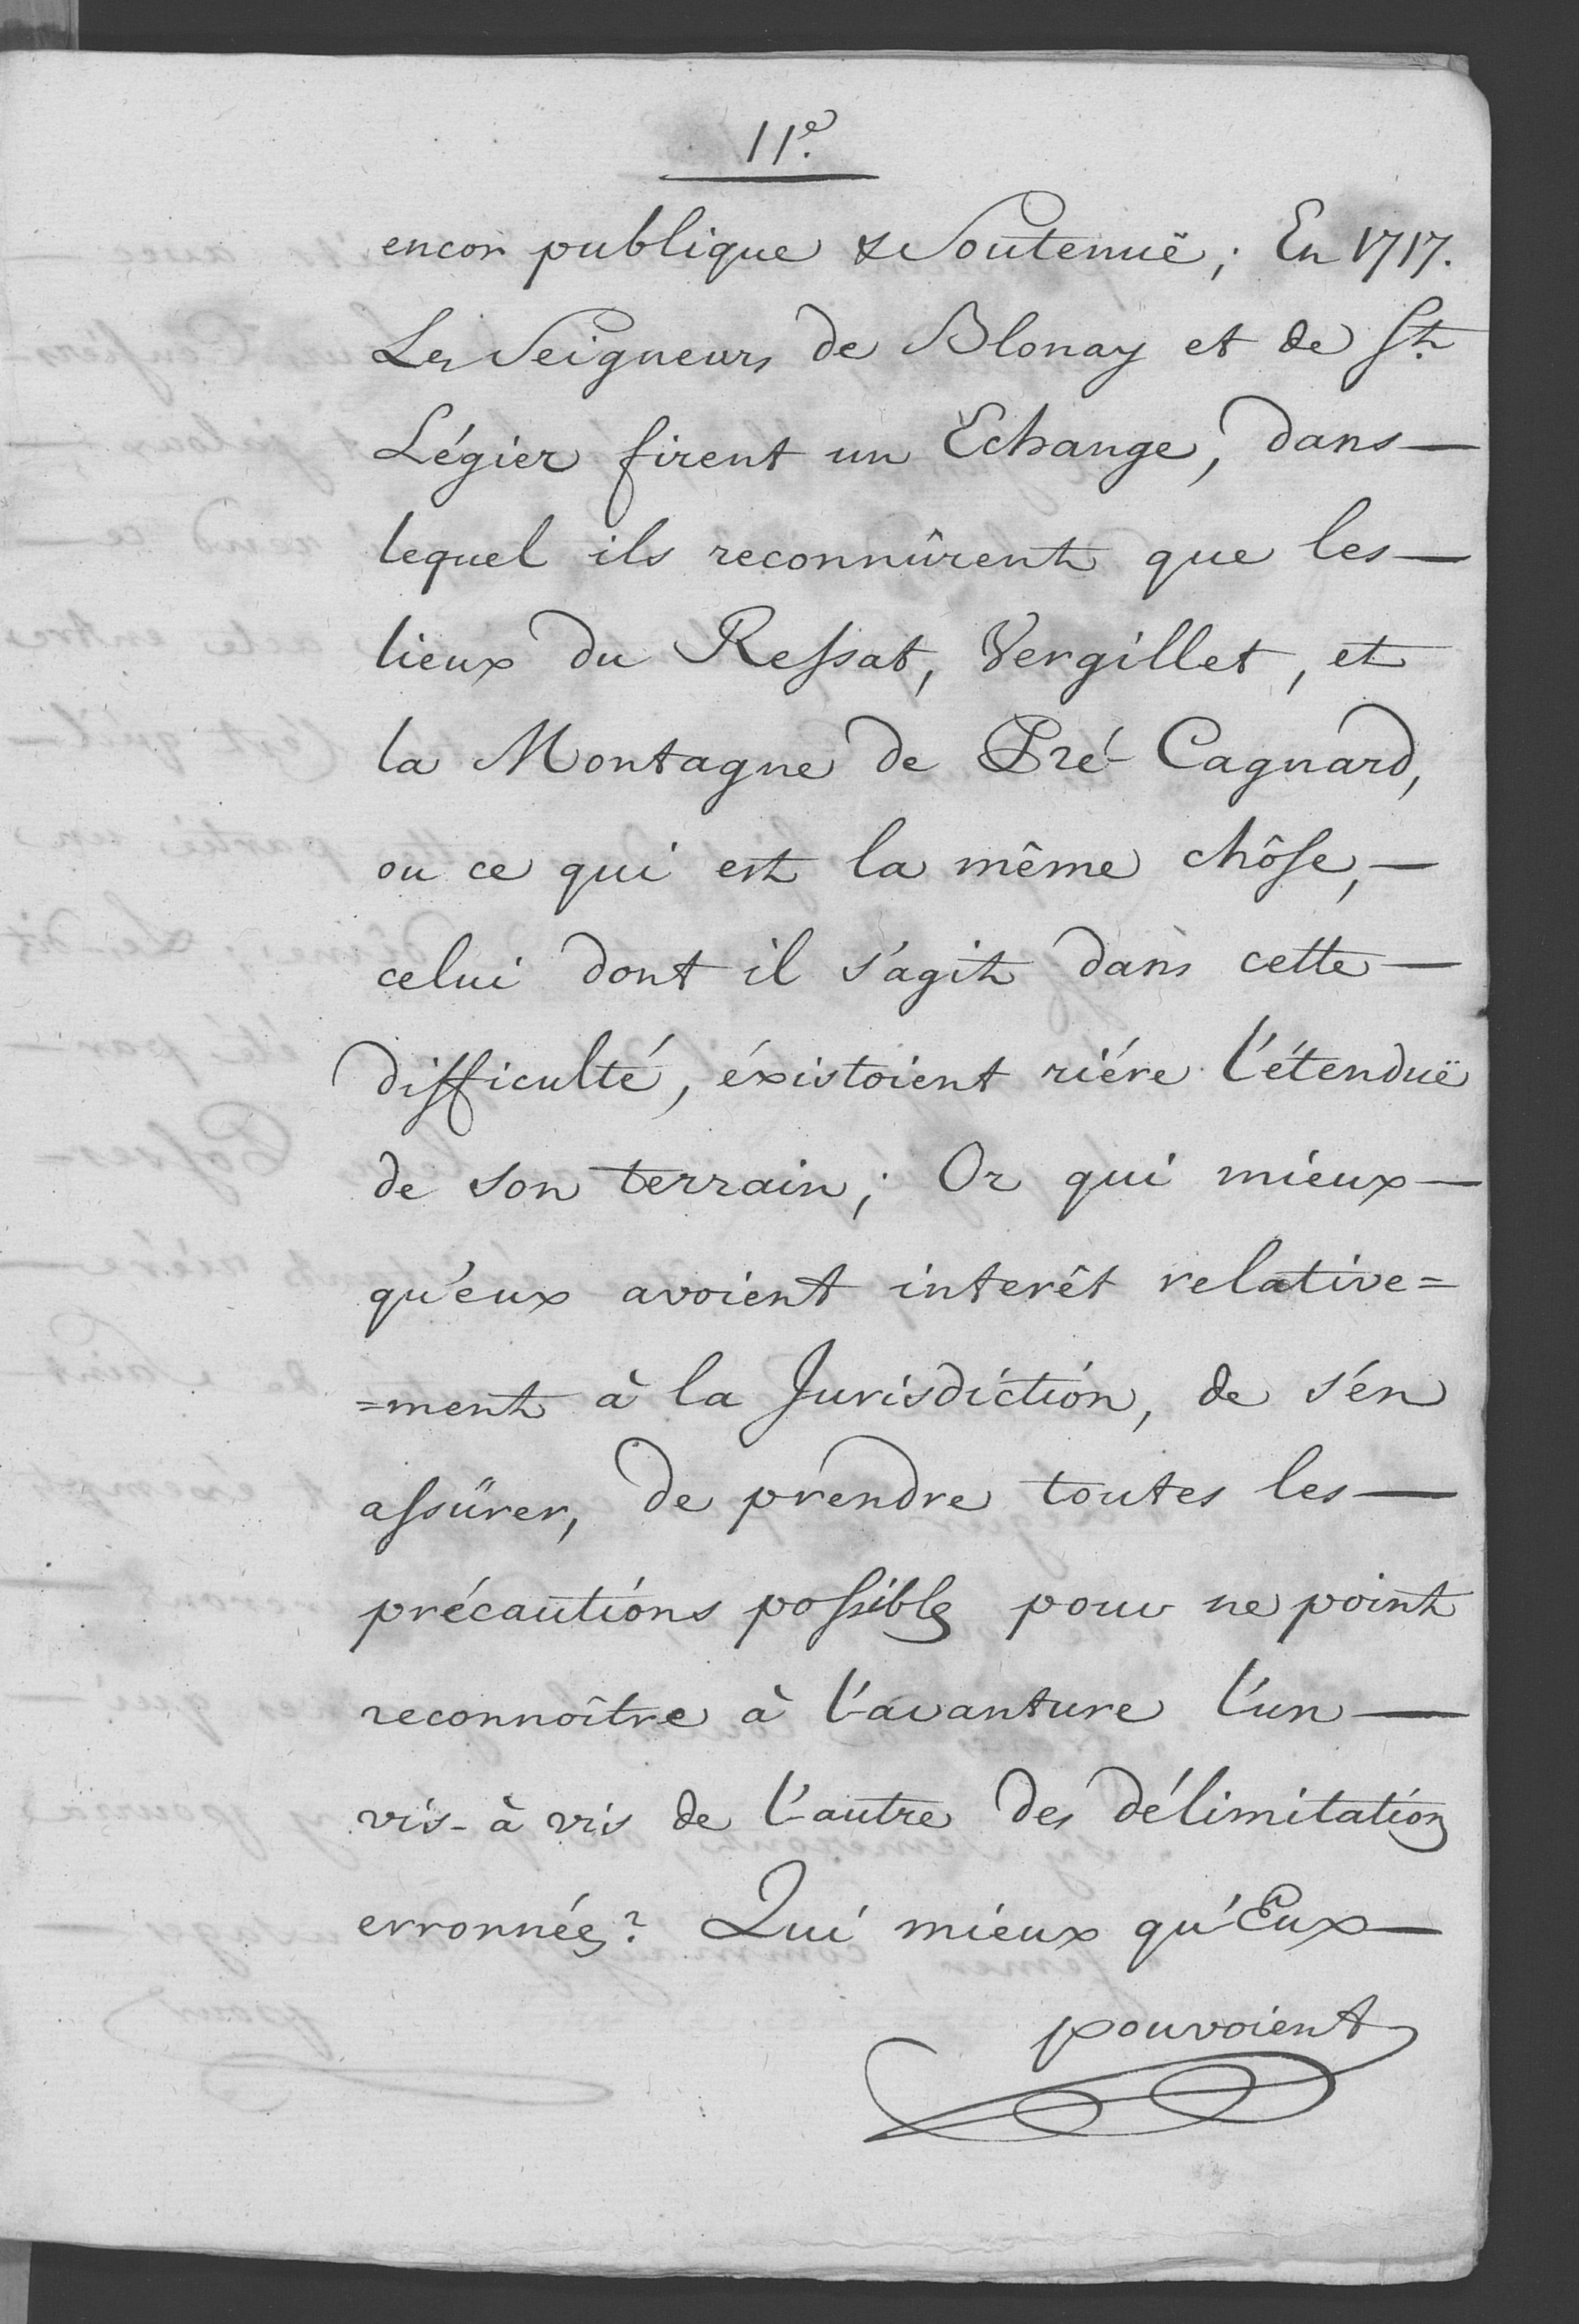 11.e
encor publique & Soutenuë; En 1717.
Les Seigneurs de Blonay et de St.
Légier firent un Echange, dans—
lequel ils reconnûrent que les—
lieux du Ressat, Vergillet, et
la Montagne de Pré-Cagnard,
ou ce qui est la même chôse,—
celui dont il s'agit dans cette—
difficulté, éxistoient riére l'étenduë
de son terrain; Or qui mieux—
qu'eux avoient interêt relative=
=ment à la Jurisdiction, de s'en
assûrer, de prendre toutes les—
précautions possibles pour ne point
reconnoître à l'avanture l'un—
vis-à vis de l'autre des délimitations
erronnées? Qui mieux qu'Eux—
pouvoient